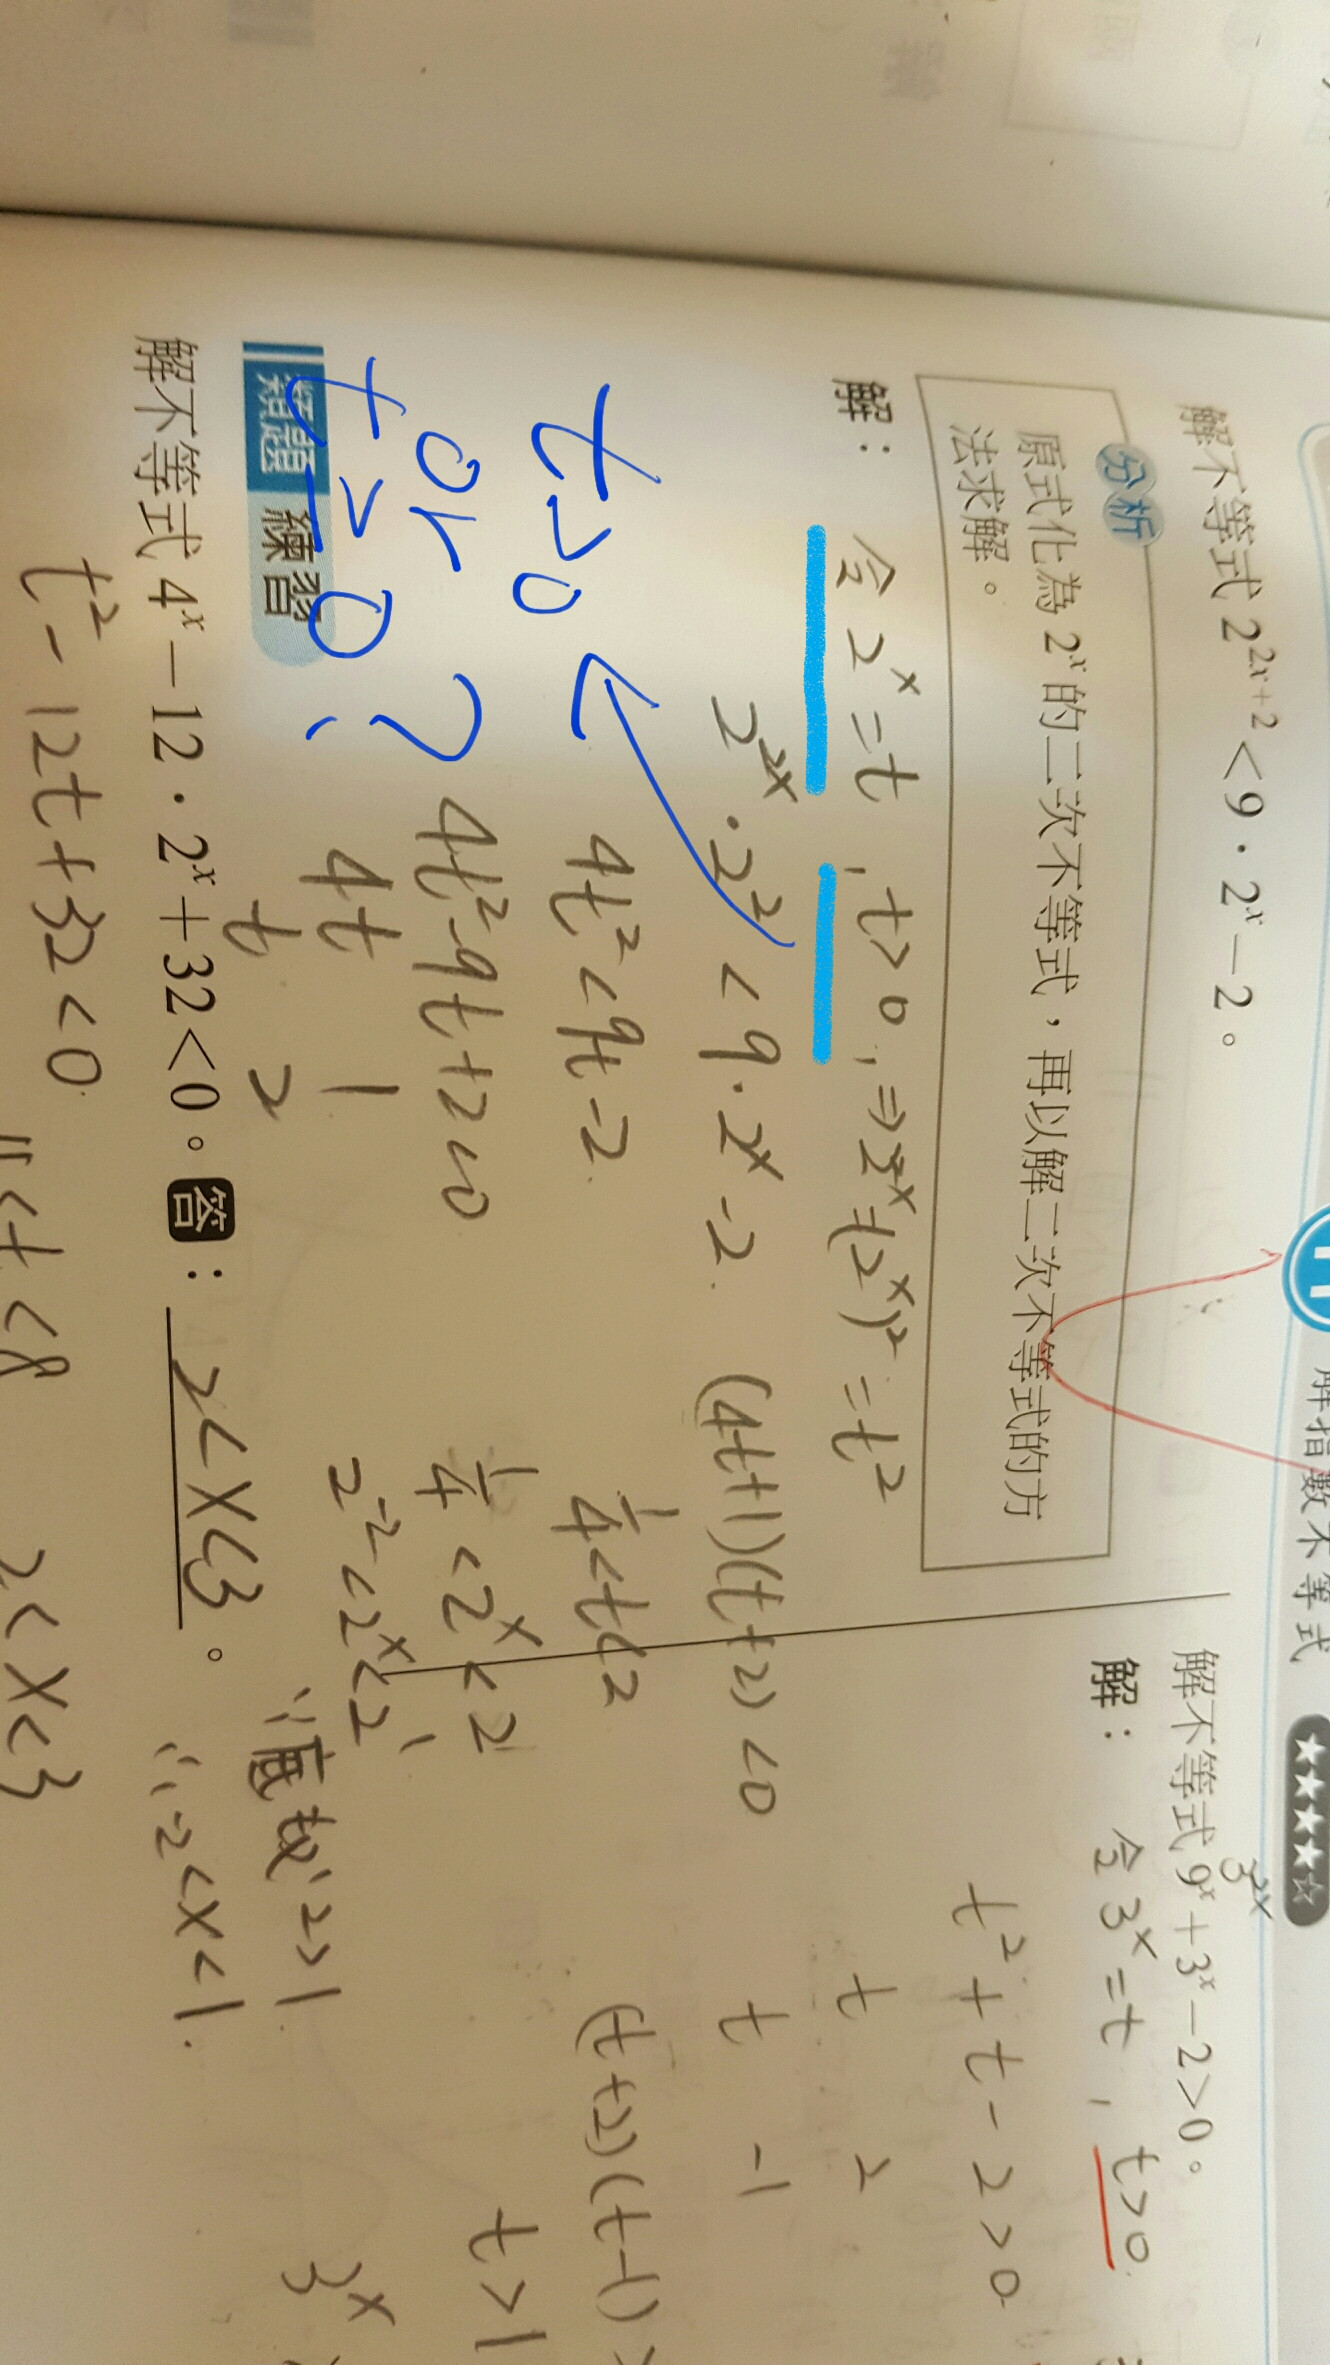 解指數不等式 ★★★★☆
解不等式 2²ˣ⁺²<9·2ˣ−2。
分析
原式化為 2ˣ 的二次不等式，再以解二次不等式的方
法求解。
解：令 2ˣ=t , t>0 , ⇒ 2²ˣ=(2ˣ)²=t²
2²ˣ·2²<9·2ˣ-2.
4t²<9t-2.
4t²-9t+2<0
4t 1
t 2
(4t+1)(t+2)<0
1/4<t<2
1/4<2ˣ<2
2⁻²<2ˣ<2¹
∵底數2>1
∴-2<x<1.
t>0
or
t≥0?
類題 練習
解不等式 4ˣ−12·2ˣ+32<0。答：2<x<3。
t²-12t+32<0.
4<t<8
2<x<3
解不等式 9ˣ+3ˣ−2>0。
3²ˣ
解：令 3ˣ=t , t>0.
t²+t-2>0.
t 2
t -1
(t+2)(t-1)>
t>1
3ˣ